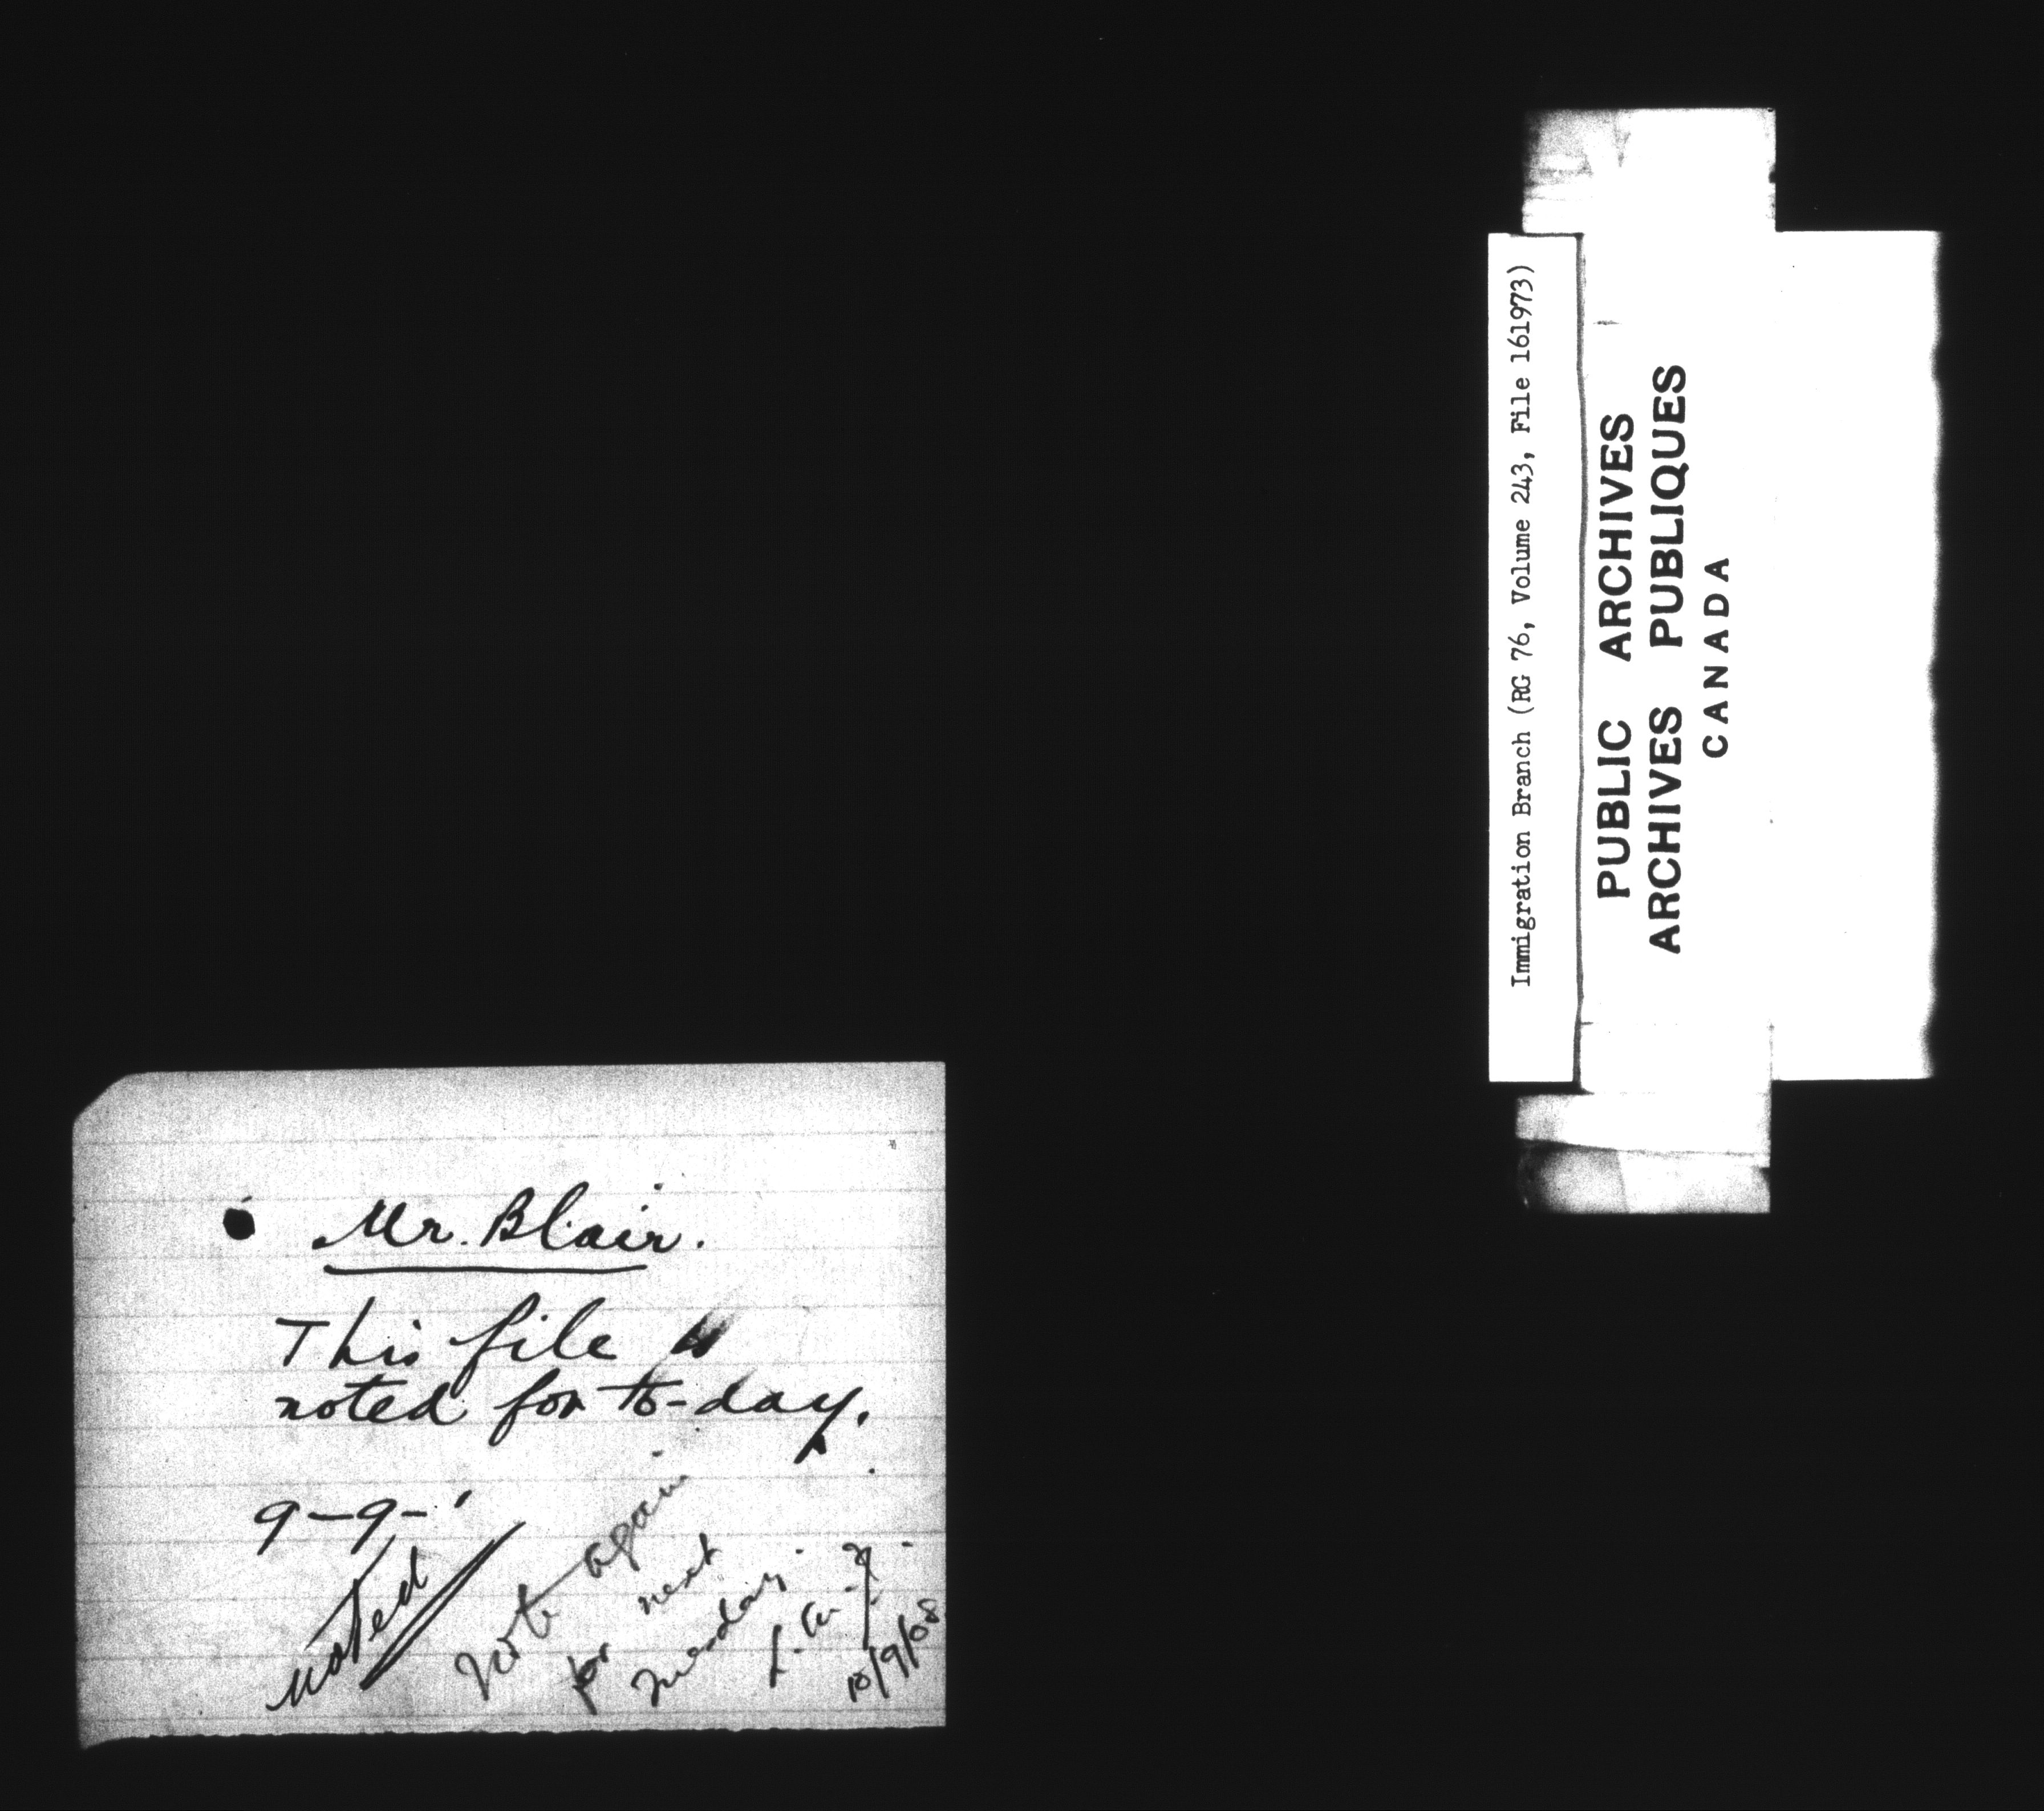 Mr. Blair.
This file is
noted for to-day.
9-9-'
noted
Note again
for next
Tuesday.
10/9/08
Immigration Branch (RG 76, Volume 243, File 161973)
PUBLIC ARCHIVES
ARCHIVES PUBLIQUES
CANADA